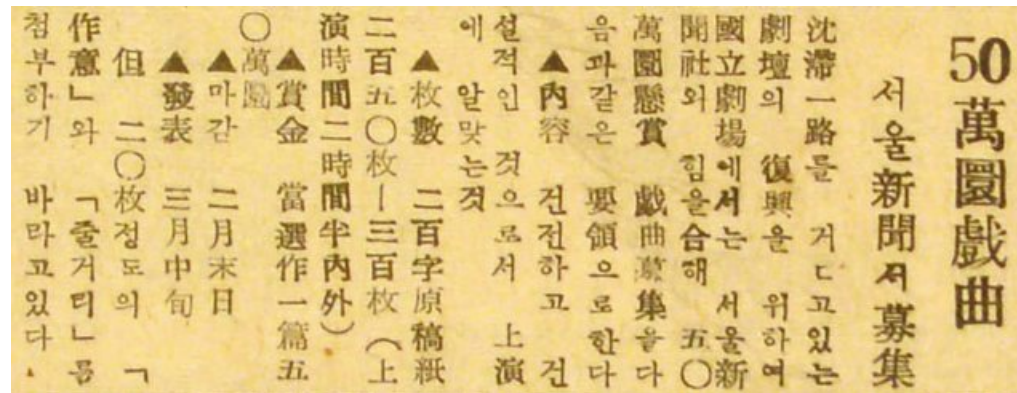 50萬圜戲曲
서울新聞서募集
沈滯一路를 거ㄷ고있는
劇壇의 復興을 위하여
國立劇場에서는 서울新
聞社와 힘을合해 五〇
萬圜懸賞 戱曲募集을다
음과같은 要領으로한다
▲內容 건전하고 건
설적인 것으로서 上演
에 알맞는것
▲枚數 二百字原稿紙
二百五〇枚ー三百枚(上
演時間二時間半內外)
▲賞金 當選作一篇五
〇萬圜
▲마감 二月末日
▲發表 三月中旬
但 二〇枚정도의 「
作意」와 「줄거리」를
첨부하기 바라고있다.